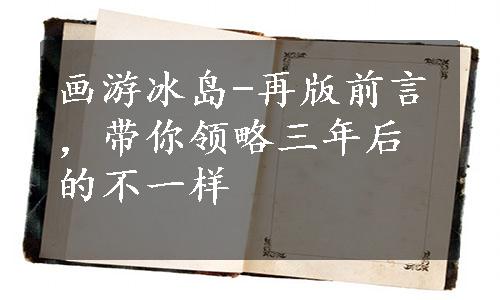 画游冰岛-再版前言
，带你领略三年后
的不一样